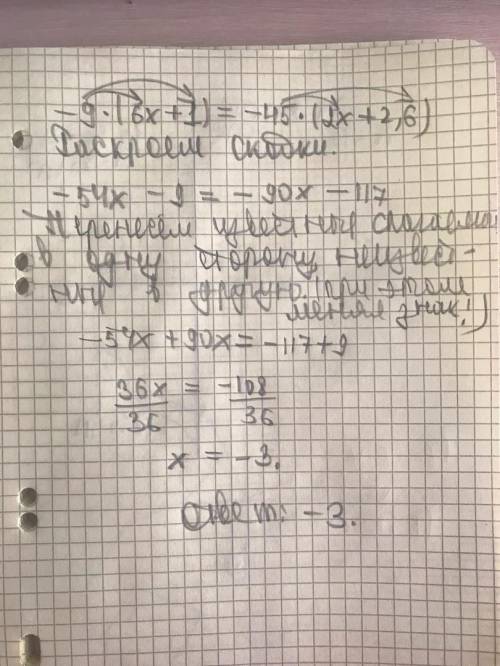 -9·(6x+1)=-45·(2x+2,6)
Раскроем скобки.
-54x -9 = -90x -117
Перенесём известные слагаемые
в одну сторону неизвест-
ный в другую (при этом
меняя знак!)
-54x+90x=-117+9
36x/36 = -108/36
x = -3.
Ответ: -3.